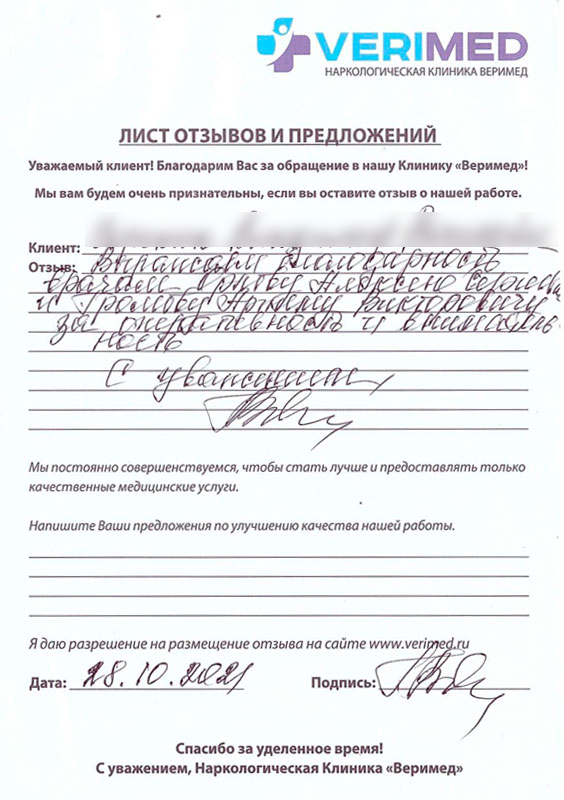 VERIMED
НАРКОЛОГИЧЕСКАЯ КЛИНИКА ВЕРИМЕД
ЛИСТ ОТЗЫВОВ И ПРЕДЛОЖЕНИЙ
Уважаемый клиент! Благодарим Вас за обращение в нашу Клинику «Веримед»!
Мы вам будем очень признательны, если вы оставите отзыв о нашей работе.
Клиент:
Отзыв: Выражаем благодарность
врачам Алексею Сергеевичу
и Громову Артёму Викторовичу
за оперативность и вниматель
ность
С уважением
Мы постоянно совершенствуемся, чтобы стать лучше и предоставлять только
качественные медицинские услуги.
Напишите Ваши предложения по улучшению качества нашей работы.
Я даю разрешение на размещение отзыва на сайте www.verimed.ru
Дата: 28.10.2021 Подпись:
Спасибо за уделенное время!
С уважением, Наркологическая Клиника «Веримед»